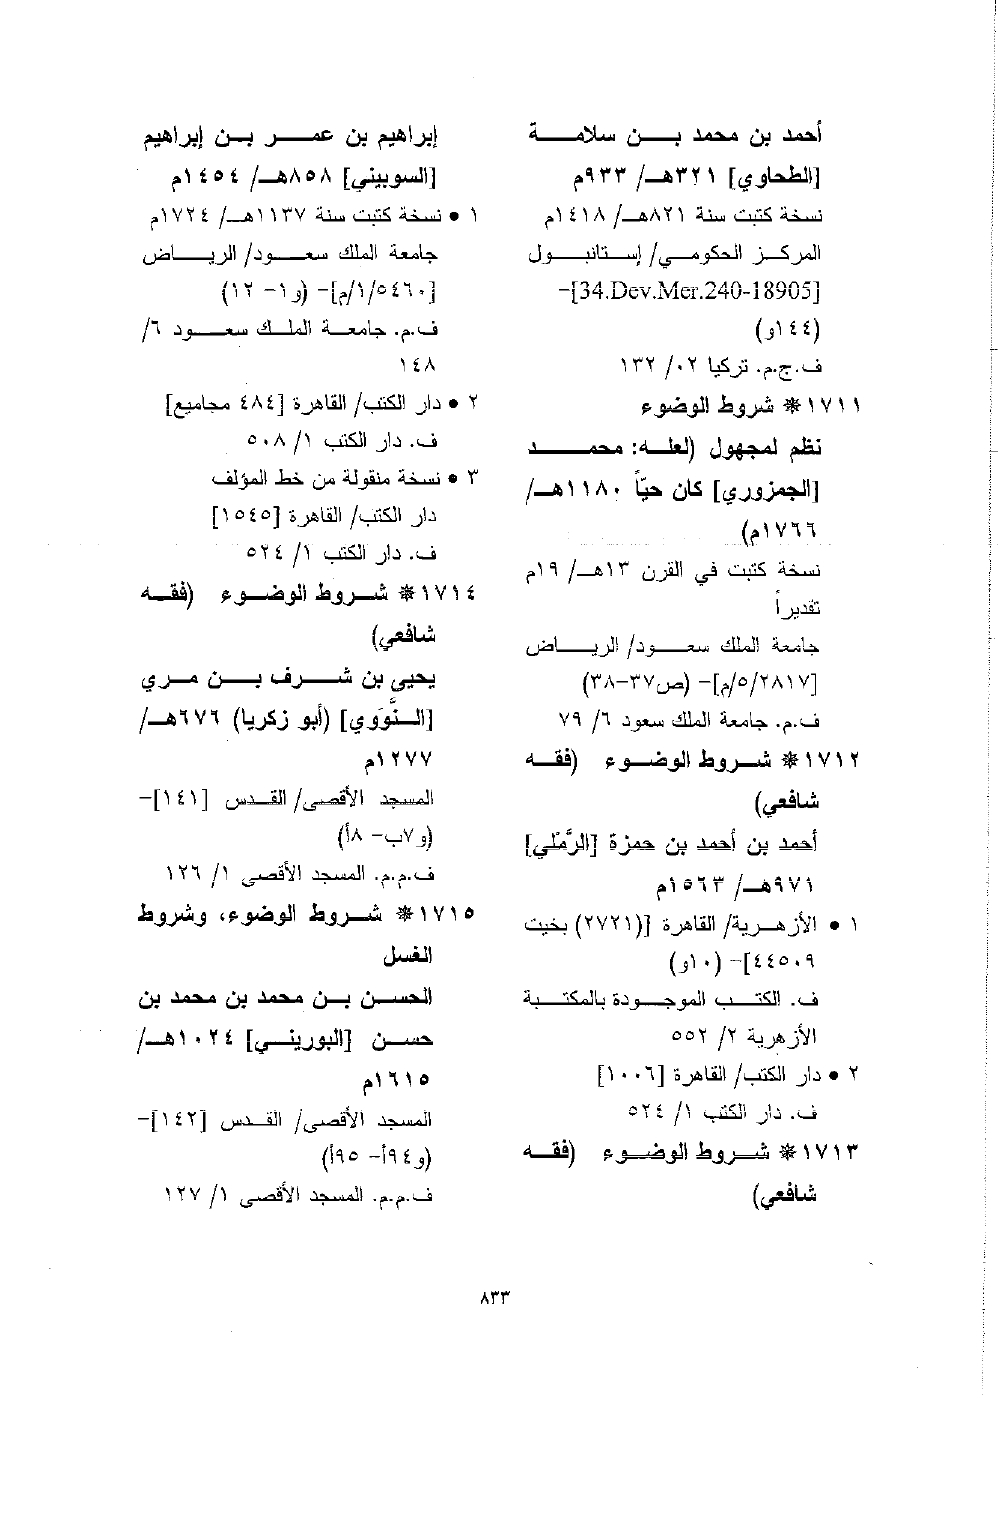 أحمد بن محمد بن سلامة
[الطحاوي] ٣٢١هـ/ ٩٣٣م
نسخة كتبت سنة ٨٢١هـ/ ١٤١٨م
المركز الحكومي/ إستانبول
[34.Dev.Mer.240-18905]-
(١٤٤و)
ف.ج.م. تركيا ٠٢/ ١٣٢
١٧١١* شروط الوضوء
نظم لمجهول (لعله: محمد
[الجمزوري] كان حيّاً ١١٨٠هـ/
١٧٦٦م)
نسخة كتبت في القرن ١٣هـ/ ١٩م
تقديراً
جامعة الملك سعود/ الرياض
[٢٨١٧/٥/م]- (ص٣٧-٣٨)
ف.م. جامعة الملك سعود ٦/ ٧٩
١٧١٢* شروط الوضوء (فقه
شافعي)
أحمد بن أحمد بن حمزة [الرَّمْلي]
٩٧١هـ/ ١٥٦٣م
١ • الأزهرية/ القاهرة [(٢٧٢١) بخيت
٤٤٥٠٩]- (١٠و)
ف. الكتب الموجودة بالمكتبة
الأزهرية ٢/ ٥٥٢
٢ • دار الكتب/ القاهرة [١٠٠٦]
ف. دار الكتب ١/ ٥٢٤
١٧١٣* شروط الوضوء (فقه
شافعي)
إبراهيم بن عمر بن إبراهيم
[السوبيني] ٨٥٨هـ/ ١٤٥٤م
١ • نسخة كتبت سنة ١١٣٧هـ/ ١٧٢٤م
جامعة الملك سعود/ الرياض
[٥٤٦٠/١/م]- (و١- ١٢)
ف.م. جامعة الملك سعود ٦/
١٤٨
٢ • دار الكتب/ القاهرة [٤٨٤ مجاميع]
ف. دار الكتب ١/ ٥٠٨
٣ • نسخة منقولة من خط المؤلف
دار الكتب/ القاهرة [١٥٤٥]
ف. دار الكتب ١/ ٥٢٤
١٧١٤* شروط الوضوء (فقه
شافعي)
يحيى بن شرف بن مري
[النَّوَوي] (أبو زكريا) ٦٧٦هـ/
١٢٧٧م
المسجد الأقصى/ القدس [١٤١]-
(و٧ب- ٨أ)
ف.م.م. المسجد الأقصى ١/ ١٢٦
١٧١٥* شروط الوضوء، وشروط
الغسل
الحسن بن محمد بن محمد بن
حسن [البوريني] ١٠٢٤هـ/
١٦١٥م
المسجد الأقصى/ القدس [١٤٢]-
(و٩٤أ- ٩٥أ)
ف.م.م. المسجد الأقصى ١/ ١٢٧
٨٣٣